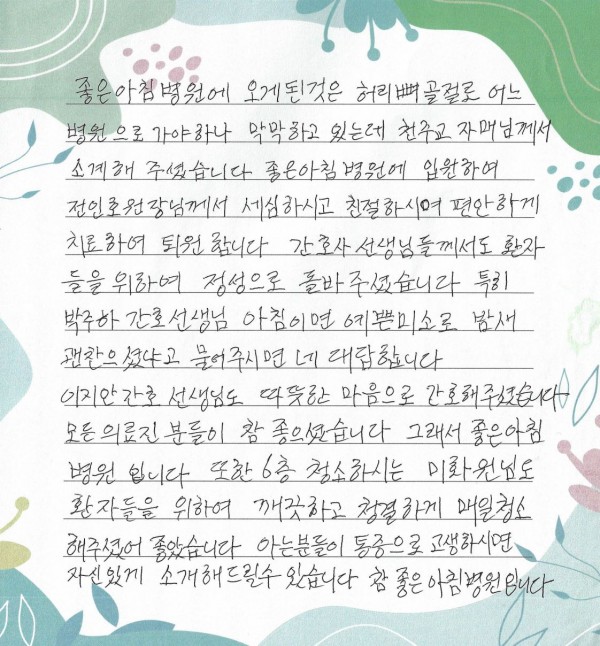 좋은아침병원에 오게된것은 허리뼈골절로 어느
병원으로 가야하나 막막하고 있는데 천주교 자매님께서
소계해 주셨습니다 좋은아침병원에 입원하여
전인호원장님께서 세심하시고 친절하시며 편안하게
치료하여 퇴원합니다 간호사 선생님들께서도 환자
들을 위하여 정성으로 돌바주셨습니다 특히
박주하 간호선생님 아침이면 예쁜미소로 밤새
괜찬으셨냐고 물어주시면 네 대답합니다
이지안간호 선생님도 따뜻한 마음으로 간호해주셨습니다
모든의료진 분들이 참 좋으셨습니다 그래서 좋은아침
병원 입니다 또한 6층 청소하시는 미화원님도
환자들을 위하여 깨끗하고 청결하게 매일청소
해주셨어 좋았습니다 아는분들이 통증으로 고생하시면
자신있게 소개해드릴수 있습니다 참 좋은아침병원입니다